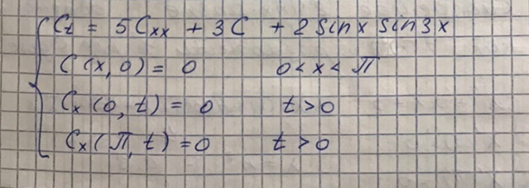 Ct = 5Cxx + 3C + 2 sinx sin3x
C(x, 0) = 0 0 < x < π
Cx(0, t) = 0 t > 0
Cx(π, t) = 0 t > 0